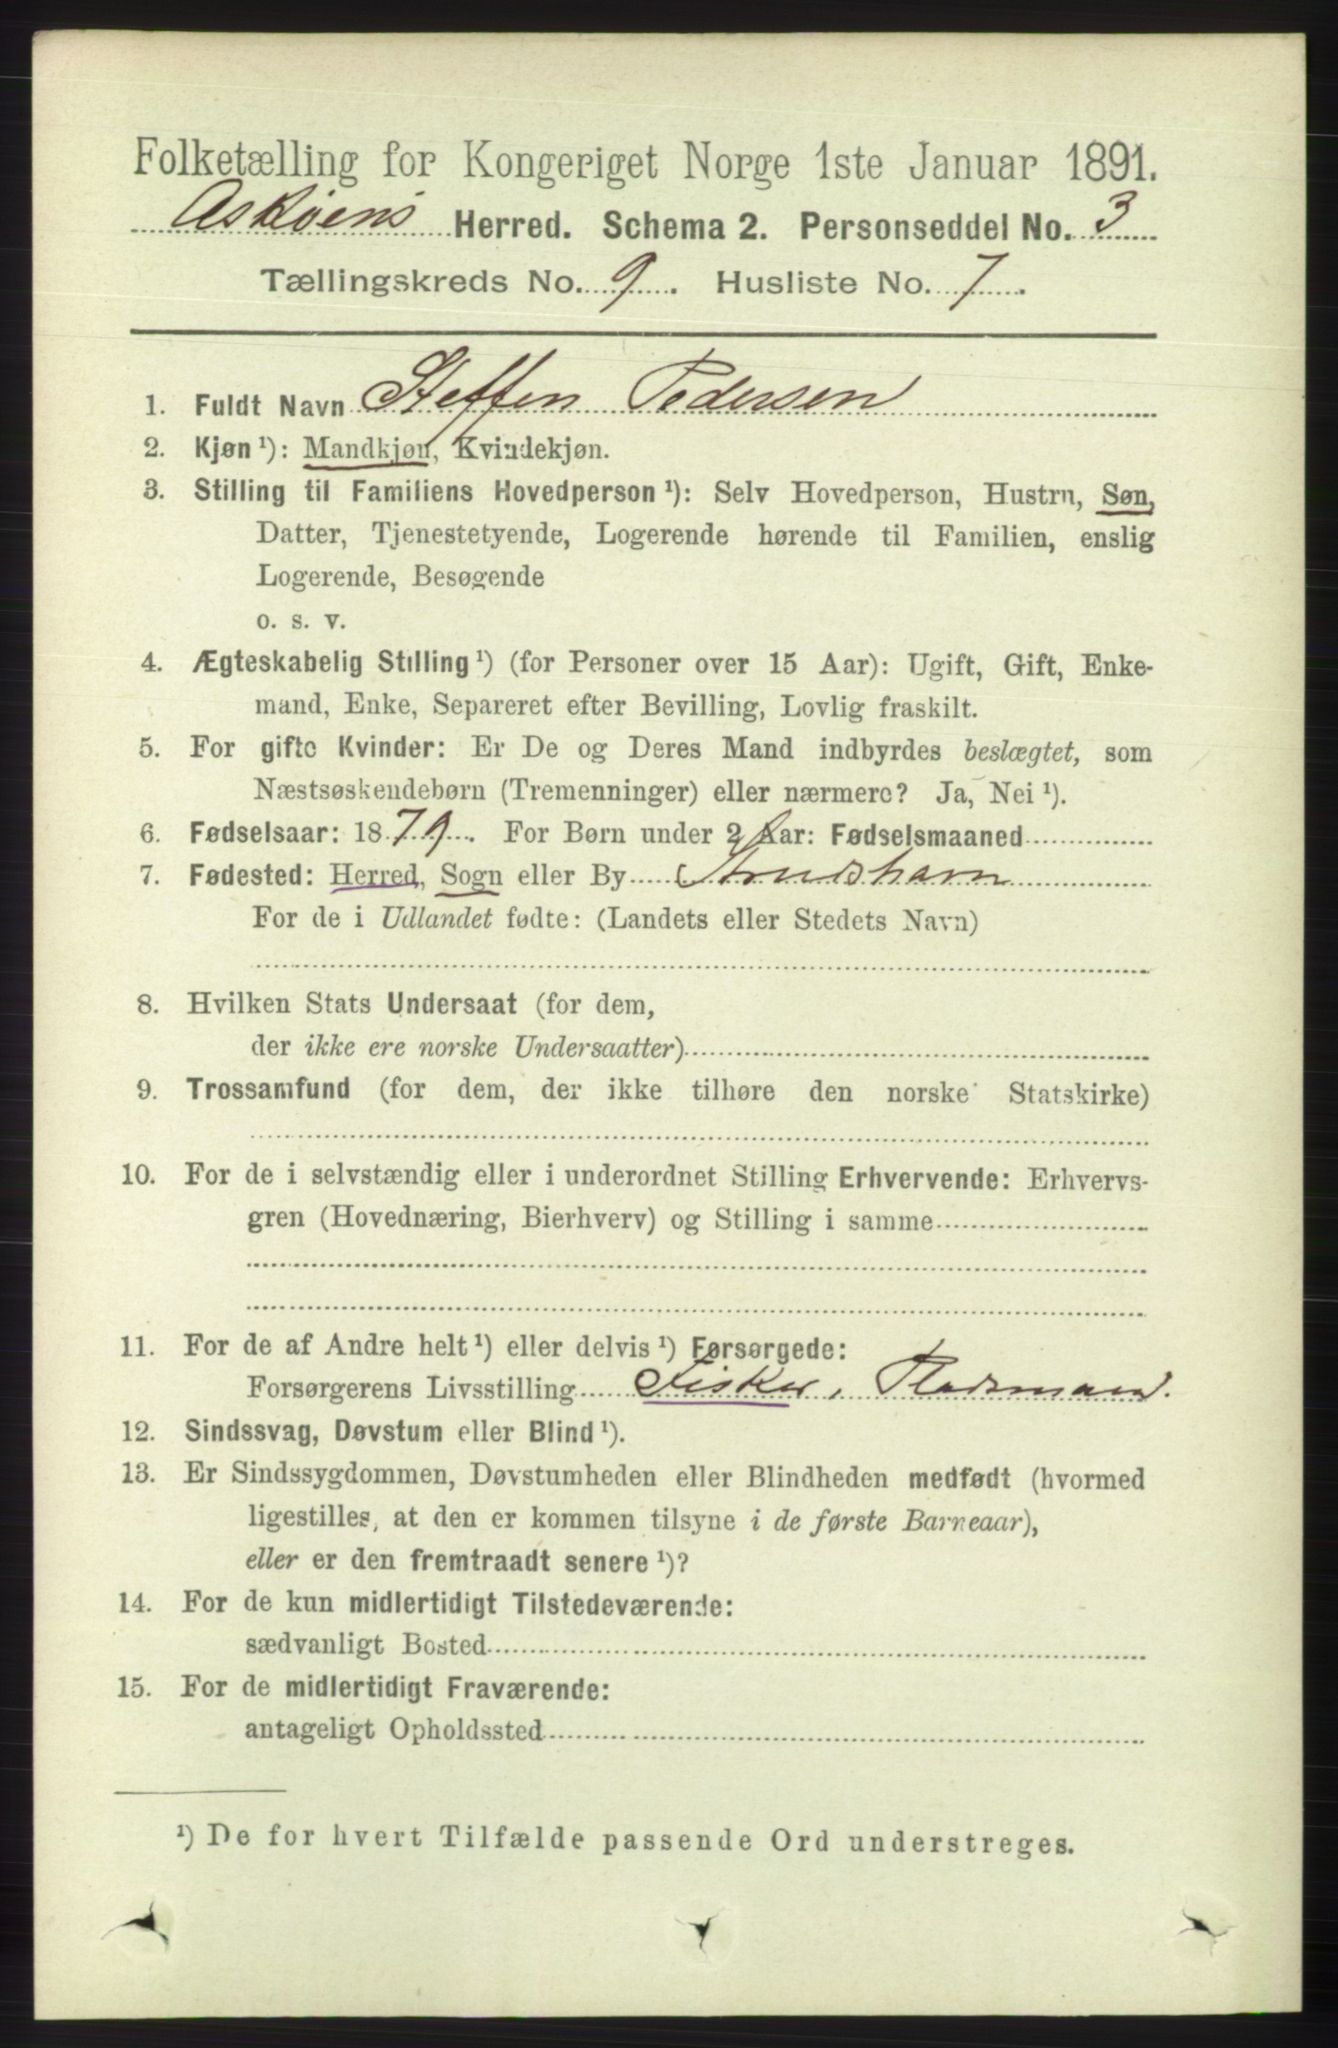 Folketælling for Kongeriget Norge 1ste Januar 1891.
Askøens Herred. Schema 2. Personseddel No. 3
Tællingskreds No. 9. Husliste No. 7.
1. Fuldt Navn Steffen Pedersen
2. Kjøn¹): Mandkjøn, Kvindekjøn.
3. Stilling til Familiens Hovedperson¹): Selv Hovedperson, Hustru, Søn,
Datter, Tjenestetyende, Logerende hørende til Familien, enslig
Logerende, Besøgende
o. s. v.
4. Ægteskabelig Stilling¹) (for Personer over 15 Aar): Ugift, Gift, Enke-
mand, Enke, Separeret efter Bevilling, Lovlig fraskilt.
5. For gifte Kvinder: Er De og Deres Mand indbyrdes beslægtet, som
Næstsøskendebørn (Tremenninger) eller nærmere? Ja, Nei¹).
6. Fødselsaar: 1879. For Børn under 2 Aar: Fødselsmaaned
7. Fødested: Herred, Sogn eller By Strudshavn
For de i Udlandet fødte: (Landets eller Stedets Navn)
8. Hvilken Stats Undersaat (for dem,
der ikke ere norske Undersaatter)
9. Trossamfund (for dem, der ikke tilhøre den norske Statskirke)
10. For de i selvstændig eller i underordnet Stilling Erhvervende: Erhvervs-
gren (Hovednæring, Bierhverv) og Stilling i samme
11. For de af Andre helt¹) eller delvis¹) Forsørgede:
Forsørgerens Livsstilling Fisker, Pladsmand.
12. Sindssvag, Døvstum eller Blind¹).
13. Er Sindssygdommen, Døvstumheden eller Blindheden medfødt (hvormed
ligestilles, at den er kommen tilsyne i de første Barneaar),
eller er den fremtraadt senere¹)?
14. For de kun midlertidigt Tilstedeværende:
sædvanligt Bosted
15. For de midlertidigt Fraværende:
antageligt Opholdssted
¹) De for hvert Tilfælde passende Ord understreges.